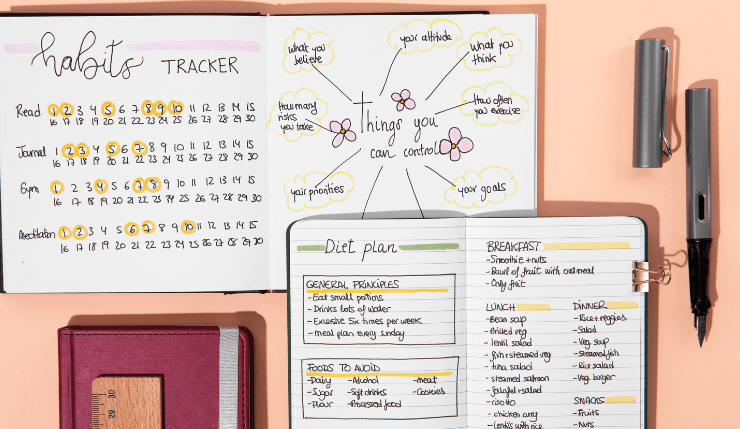 habits TRACKER
Read 1 2 3 4 5 6 7 8 9 10 11 12 13 14 15
16 17 18 19 20 21 22 23 24 25 26 27 28 29 30
Journal 1 2 3 4 5 6 7 8 9 10 11 12 13 14 15
16 17 18 19 20 21 22 23 24 25 26 27 28 29 30
Gym 1 2 3 4 5 6 7 8 9 10 11 12 13 14 15
16 17 18 19 20 21 22 23 24 25 26 27 28 29 30
Meditation 1 2 3 4 5 6 7 8 9 10 11 12 13 14 15
16 17 18 19 20 21 22 23 24 25 26 27 28 29 30
what you
believe
your attitude
what you
think
How many
risks
you take
How often
you exercise
Things you
can control
your priorities
your goals
Diet plan
GENERAL PRINCIPLES
- Eat small portions
- Drinks lots of water
- Excersive 5x times per week
- meal plan every sunday
FOODS TO AVOID
- Dairy - Alcohol - meat
- Sugar - Soft drinks - Cookies
- Flour - Processed food
BREAKFAST
- Smoothie + nuts
- Bowl of fruit with oatmeal
- Only fruit
LUNCH
- Bean soup
- Grilled veg
- lentil salad
- fish + steamed veg
- tuna salad
- steamed salmon
- falafel + salad
- risotto
- chicken curry
- Lentils with rice
DINNER
- Rice + veggies
- Salad
- Veg soup
- Steamed fish
- Rice salad
- Veg burger
SNACKS
- Fruits
- Nuts
30
29